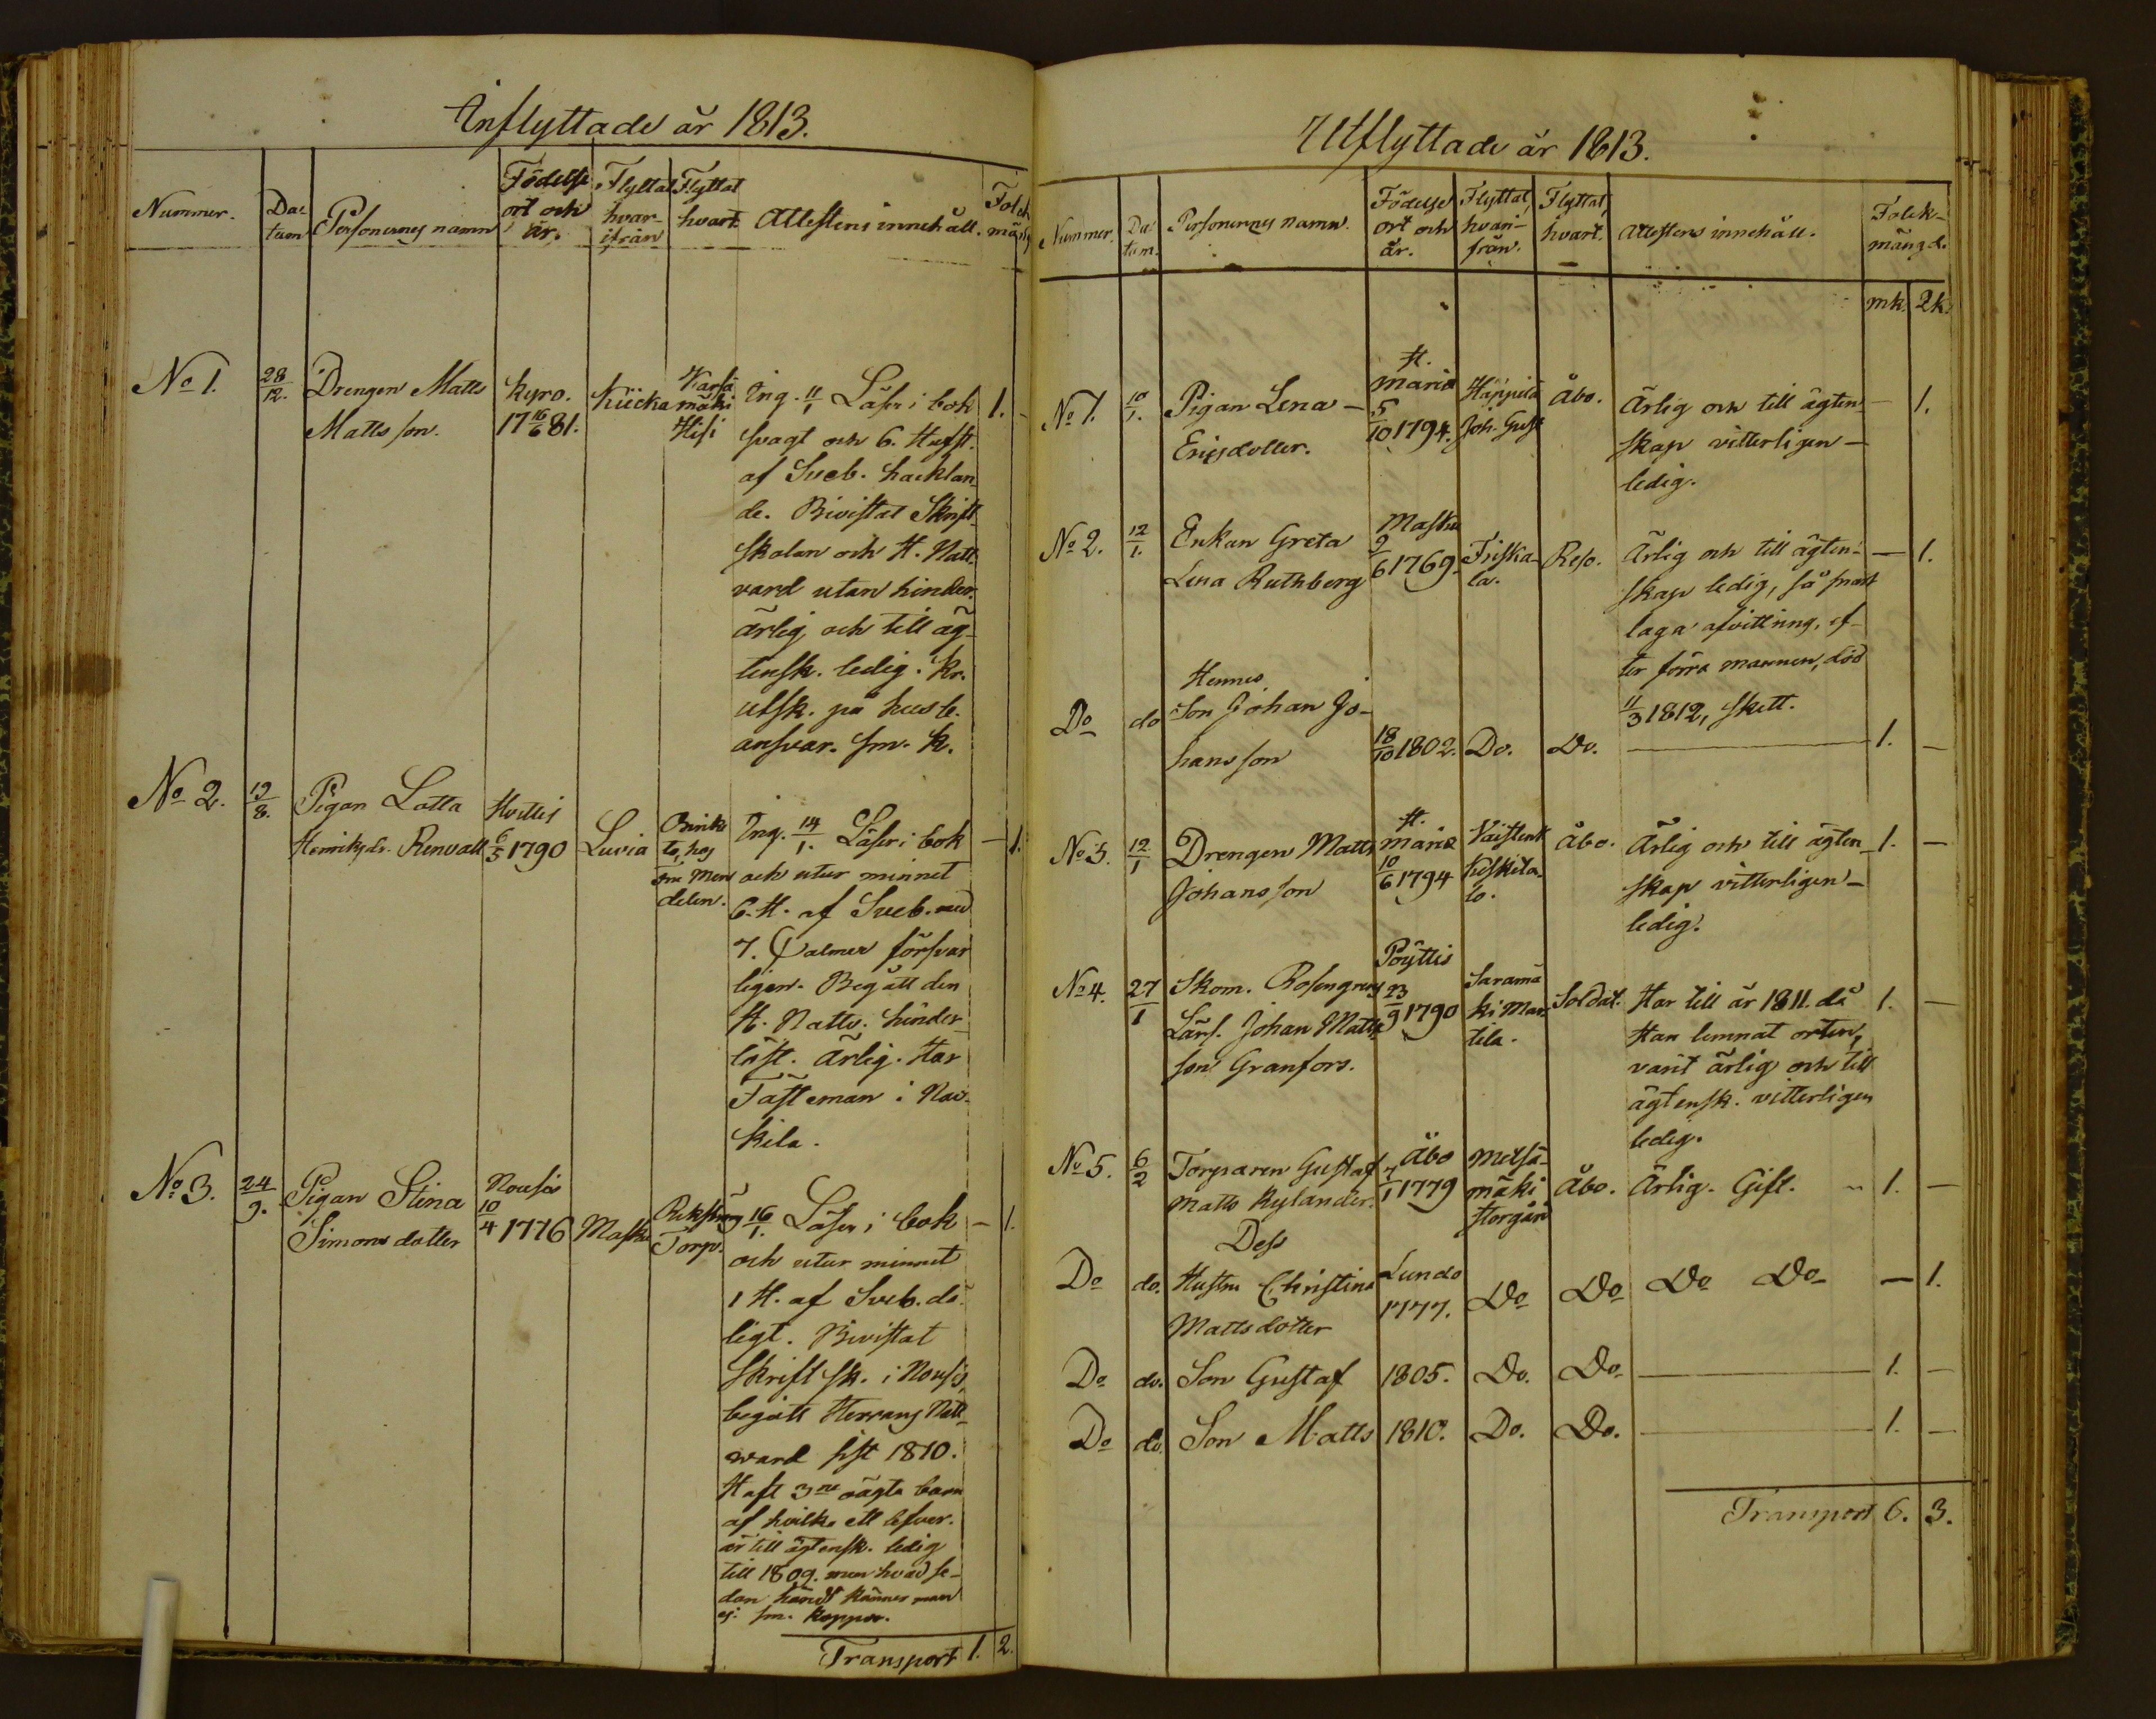 Inflyttade år 1813.
Nummer.
Da=
tum
Personernes namn
Födelse
ort och
år.
Flyttat
hvar-
ifrån
Flyttat
hvart
Attestens innehåll.
Folck
mängd
No 1.
28/12.
Drengen Matts
Matts son.
Kyro.
17 16/6 81.
Kücka
Karsa
mäki
Hisi
Ing. 11/1 Läser i bok
svagt och 6. Hufst.
af Sveb. hacklan-
de. Bivistat Skrift
skolan och H. Natt-
vard utan hinder.
ärlig och till äg-
tensk. ledig. Kr.
utsk. på husb.
ansvar. sm. K.
1. -
No 2.
19/8.
Pigan Lotta
Henriksdr. Renvall
Hvittis
6/5 1790
Luvia
to, hos
delen.
Ing. 14/1. Läser i bok
och utur minnet
6. H. af Sveb. med
7. Psalmer försvar
ligen. Begått den
H. Nattv. hinder-
löst. Ärlig. Har
Fästeman i Nau-
kila.
- 1.
No 3.
24/9.
Pigan Stina
Simons dotter
Nousis
10/4 1776
Masku
Torp.
16/1. Läser i bok
och utur minnet
1 H. af Sveb. då-
ligt. Bivistat
Skrift sk. i Nousis,
begått Herrans Natt-
ward sist 1810.
Haft 3ne oägta barn
af hvilka ett lefver.
är till ägtensk. ledig
till 1809. men hvad se-
dan händt känner man
ej. sm. koppor.
- 1.
Transport 1. 2.
Utflyttade år 1813.
Nummer.
Da
tum.
Personernes namn.
Födelse
ort och
år.
Flyttat,
hvari-
från.
Flyttat,
hvart.
Attestens innehåll.
Folck-
mängd.
mk. 2k.
No 1.
10/1.
Pigan Lena -
Ericsdotter.
St.
Maria
5/10 1794.
Häppilä
Joh. Gust
Åbo.
Ärlig och till ägten-
skap vitterligen -
ledig.
- 1.
No 2.
12/1.
Enkan Greta
Lena Ruthberg
Masku
9/6 1769.
Friska-
la.
Reso.
Ärlig och till ägten-
skap ledig, så snart
laga afvittring, ef-
ter förra mannen, död
11/3 1812, skett.
- 1.
Do do
Hennes
Son Johan Jo-
hansson
18/10 1802.
Do.
Do.
1. -
No 3.
12/1
Drengen Matts
Johansson
St.
Maria
10/6 1794
Vaistent
Koskila-
lo.
Åbo.
Ärlig och till ägten-
skap vitterligen -
ledig.
1. -
No 4.
27/1
Skom. Rosengrens
Lärl. Johan Matts-
son Granfors.
Pöyttis
23/9 1790
Saramä
ki Mar-
tila.
Soldat.
Har till år 1811. då
Han lemnat orten,
varit ärlig och till
ägtensk. vitterligen
ledig.
1. -
No 5.
6/2
Torparen Gustaf
Matts Kylander.
Åbo
7/1 1779
Metsä-
mäki
Storgård
Åbo.
Ärlig. Gift.
1. -
Do do.
Dess
Hustru Christina
Mattsdotter
Lundo
1777.
Do
Do
Do Do
- 1.
Do do.
Son Gustaf
1805.
Do.
Do.
1. -
Do do.
Son Matts
1810.
Do.
Do.
1. -
Transport 6. 3.